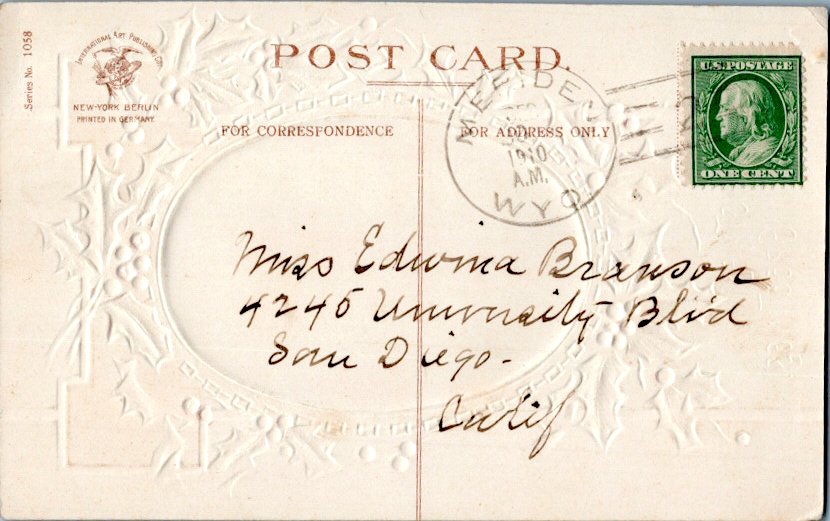 Series No. 1058
INTERNATIONAL ART PUBLISHING CO.
NEW-YORK BERLIN
PRINTED IN GERMANY
POST CARD.
FOR CORRESPONDENCE
FOR ADDRESS ONLY
1910
A.M.
WYO
U.S. POSTAGE
ONE CENT
Miss Edwina Branson
4245 University Blvd
San Diego -
Calif